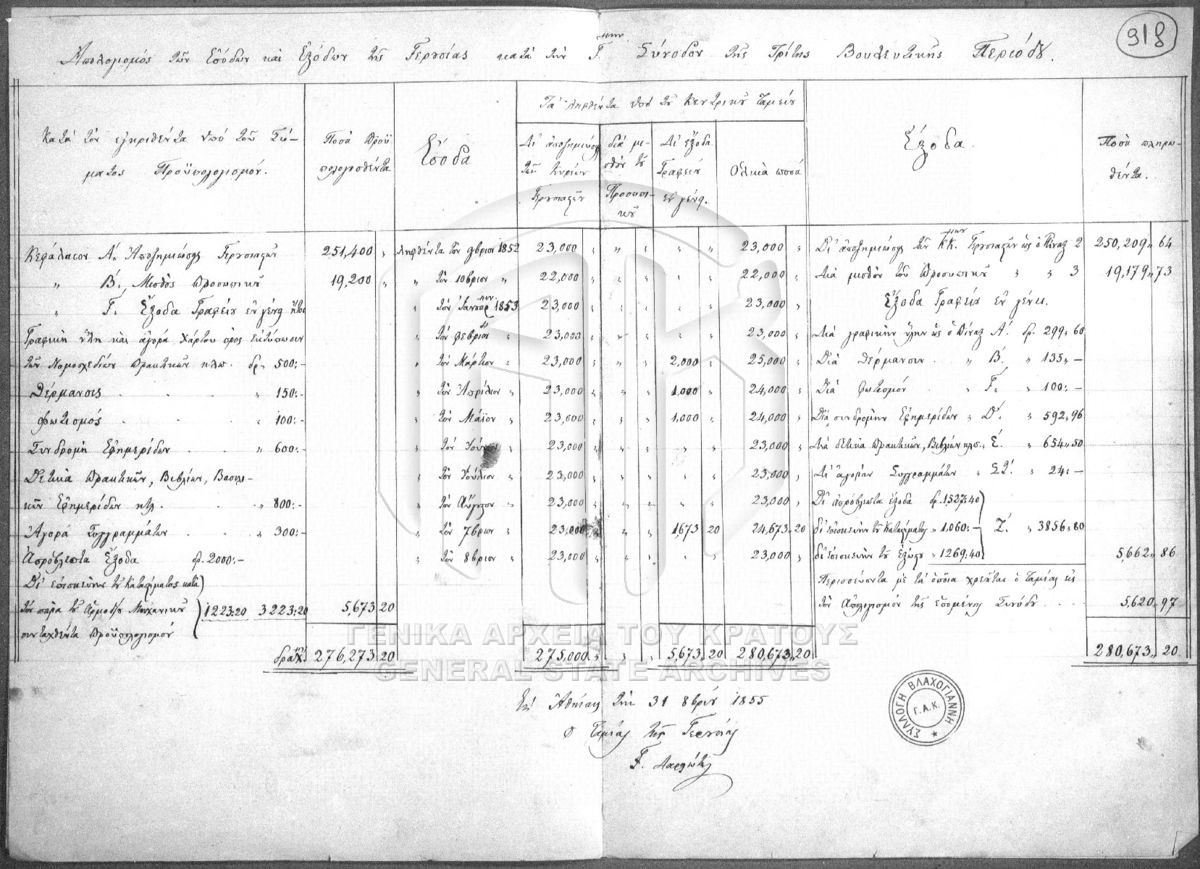 318
Ἀπολογισμός τῶν Ἐσόδων καὶ Ἐξόδων τῆς Γερουσίας κατὰ τὴν Γ.' Σύνοδον τῆς Τρίτης Βουλευτικῆς Περιόδου.
Κατὰ τὸν ὑπὸ τοῦ Σώ-
ματος Προϋπολογισμόν.
Ποσὰ Προϋ
πολογισθέντα
Ἔσοδα
Τὰ ληφθέντα ὑπὸ τοῦ Κεντρικοῦ Ταμείου
Δι' ἀποζημίωσιν
τῶν Κυρίων
Γερουσιαστῶν
διὰ μι-
σθὸν τοῦ
Προσωπι-
κοῦ
Δι' ἔξοδα
Γραφείου
ἐν γένει
Ὁλικὰ ποσά
Ἔξοδα.
Ποσὰ πληρω-
θέντα.
Κεφάλαιον Α.' Ἀποζημίωσις Γερουσιαστῶν 251,400 " ληφθέντα τὸν 9βριον 1852 23,000 " " " " " 23,000 " Δι' ἀποζημίωσιν τῶν Κ.Κ. Γερουσιαστῶν ὡς ὁ Πίναξ 2 250,209 " 64
" Β.' Μισθὸς Προσωπικοῦ 19,200 " " τὸν 10βριον " 22,000 " " " " " 22,000 " Διὰ μισθὸν τοῦ Προσωπικοῦ " " 3 19,179 " 73
" Γ.' Ἔξοδα Γραφείου ἐν γένει " τὸν Ἰαννουάρ 1853 23,000 " " " " " 23,000 " Ἔξοδα Γραφείου ἐν γένει.
Γραφικὴ ὕλη καὶ ἀγορὰ Χάρτου πρὸς ἐκτύπωσιν " τὸν Φεβρ " 23,000 " " " " " 23,000 " Διὰ γραφικὴν ὕλην ὡς ὁ Πίναξ Α' δρ. 299 " 60
τῶν Νομοσχεδίων Πρακτικῶν κλπ. δρ. 500:- " τὸν Μάρτιον " 23,000 " " " 2,000 " 25,000 " Διὰ θέρμανσιν " Β.' " 135 " -
Θέρμανσις " 150:- " τὸν Ἀπρίλιον " 23,000 " " " 1,000 " 24,000 " Διὰ φωτισμόν " Γ.' " 100:-
Φωτισμός " 100:- " τὸν Μάϊον " 23,000 " " " 1,000 " 24,000 " Διὰ συνδρομὴν Ἐφημερίδων " Δ.' " 592 " 96
Συνδρομὴ Ἐφημερίδων " 600:- " τὸν Ἰούν " 23,000 " " " " " 23,000 " Διὰ δετικὰ Πρακτικῶν, Βιβλίων κλπ. Ε.' " 654 " 50
Δετικὰ Πρακτικῶν, Βιβλίων, Βασιλι- " τὸν Ἰούλιον " 23,000 " " " " " 23,000 " Δι' ἀγορὰν Συγγραμμάτων " ΣΤ.' " 24:-
κῶν Ἐφημερίδων κτλ. " 800:- " τὸν Αὔγουστον " 23,000 " " " " " 23,000 " Δι' ἀπρόβλεπτα ἔξοδα δρ. 1527:40
Ἀγορὰ Συγγραμμάτων " 300:- " τὸν 7βριον " 23,000 " " " 1673 20 24,673 20 δι' ἐπισκευὴν τοῦ Καταστήματος " 1060:- Ζ.' " 3856 " 80
Ἀπρόβλεπτα Ἔξοδα δρ. 2000:- " τὸν 8βριον " 23,000 " " " " " 23,000 " δι' ἐπισκευὴν " 1269:40 5,662 " 86
Δι' ἐπισκευὴν τοῦ Καταστήματος κατὰ
τὸν παρὰ τοῦ Ἁρμοδίου Μηχανικοῦ 1223:20 3223:20 5,673 20
συνταχθέντα Προϋπολογισμόν
Περισσεύοντα με τὰ ὁποῖα χρεοῦται ὁ Ταμίας εἰς
τὸν Ἀπολογισμὸν τῆς ἑπομένης Συνόδου 5,620 " 97
δραχ. 276,273 20 275,000 " " " 5,673 20 280,673 20 280,673 20
Ἐν Ἀθήναις τὴν 31 8βρίου 1855
ὁ Ταμίας τῆς Γερουσίας
ΓΕΝΙΚΑ ΑΡΧΕΙΑ ΤΟΥ ΚΡΑΤΟΥΣ
GENERAL STATE ARCHIVES
ΣΥΛΛΟΓΗ ΒΛΑΧΟΓΙΑΝΝΗ
Γ.Α.Κ.